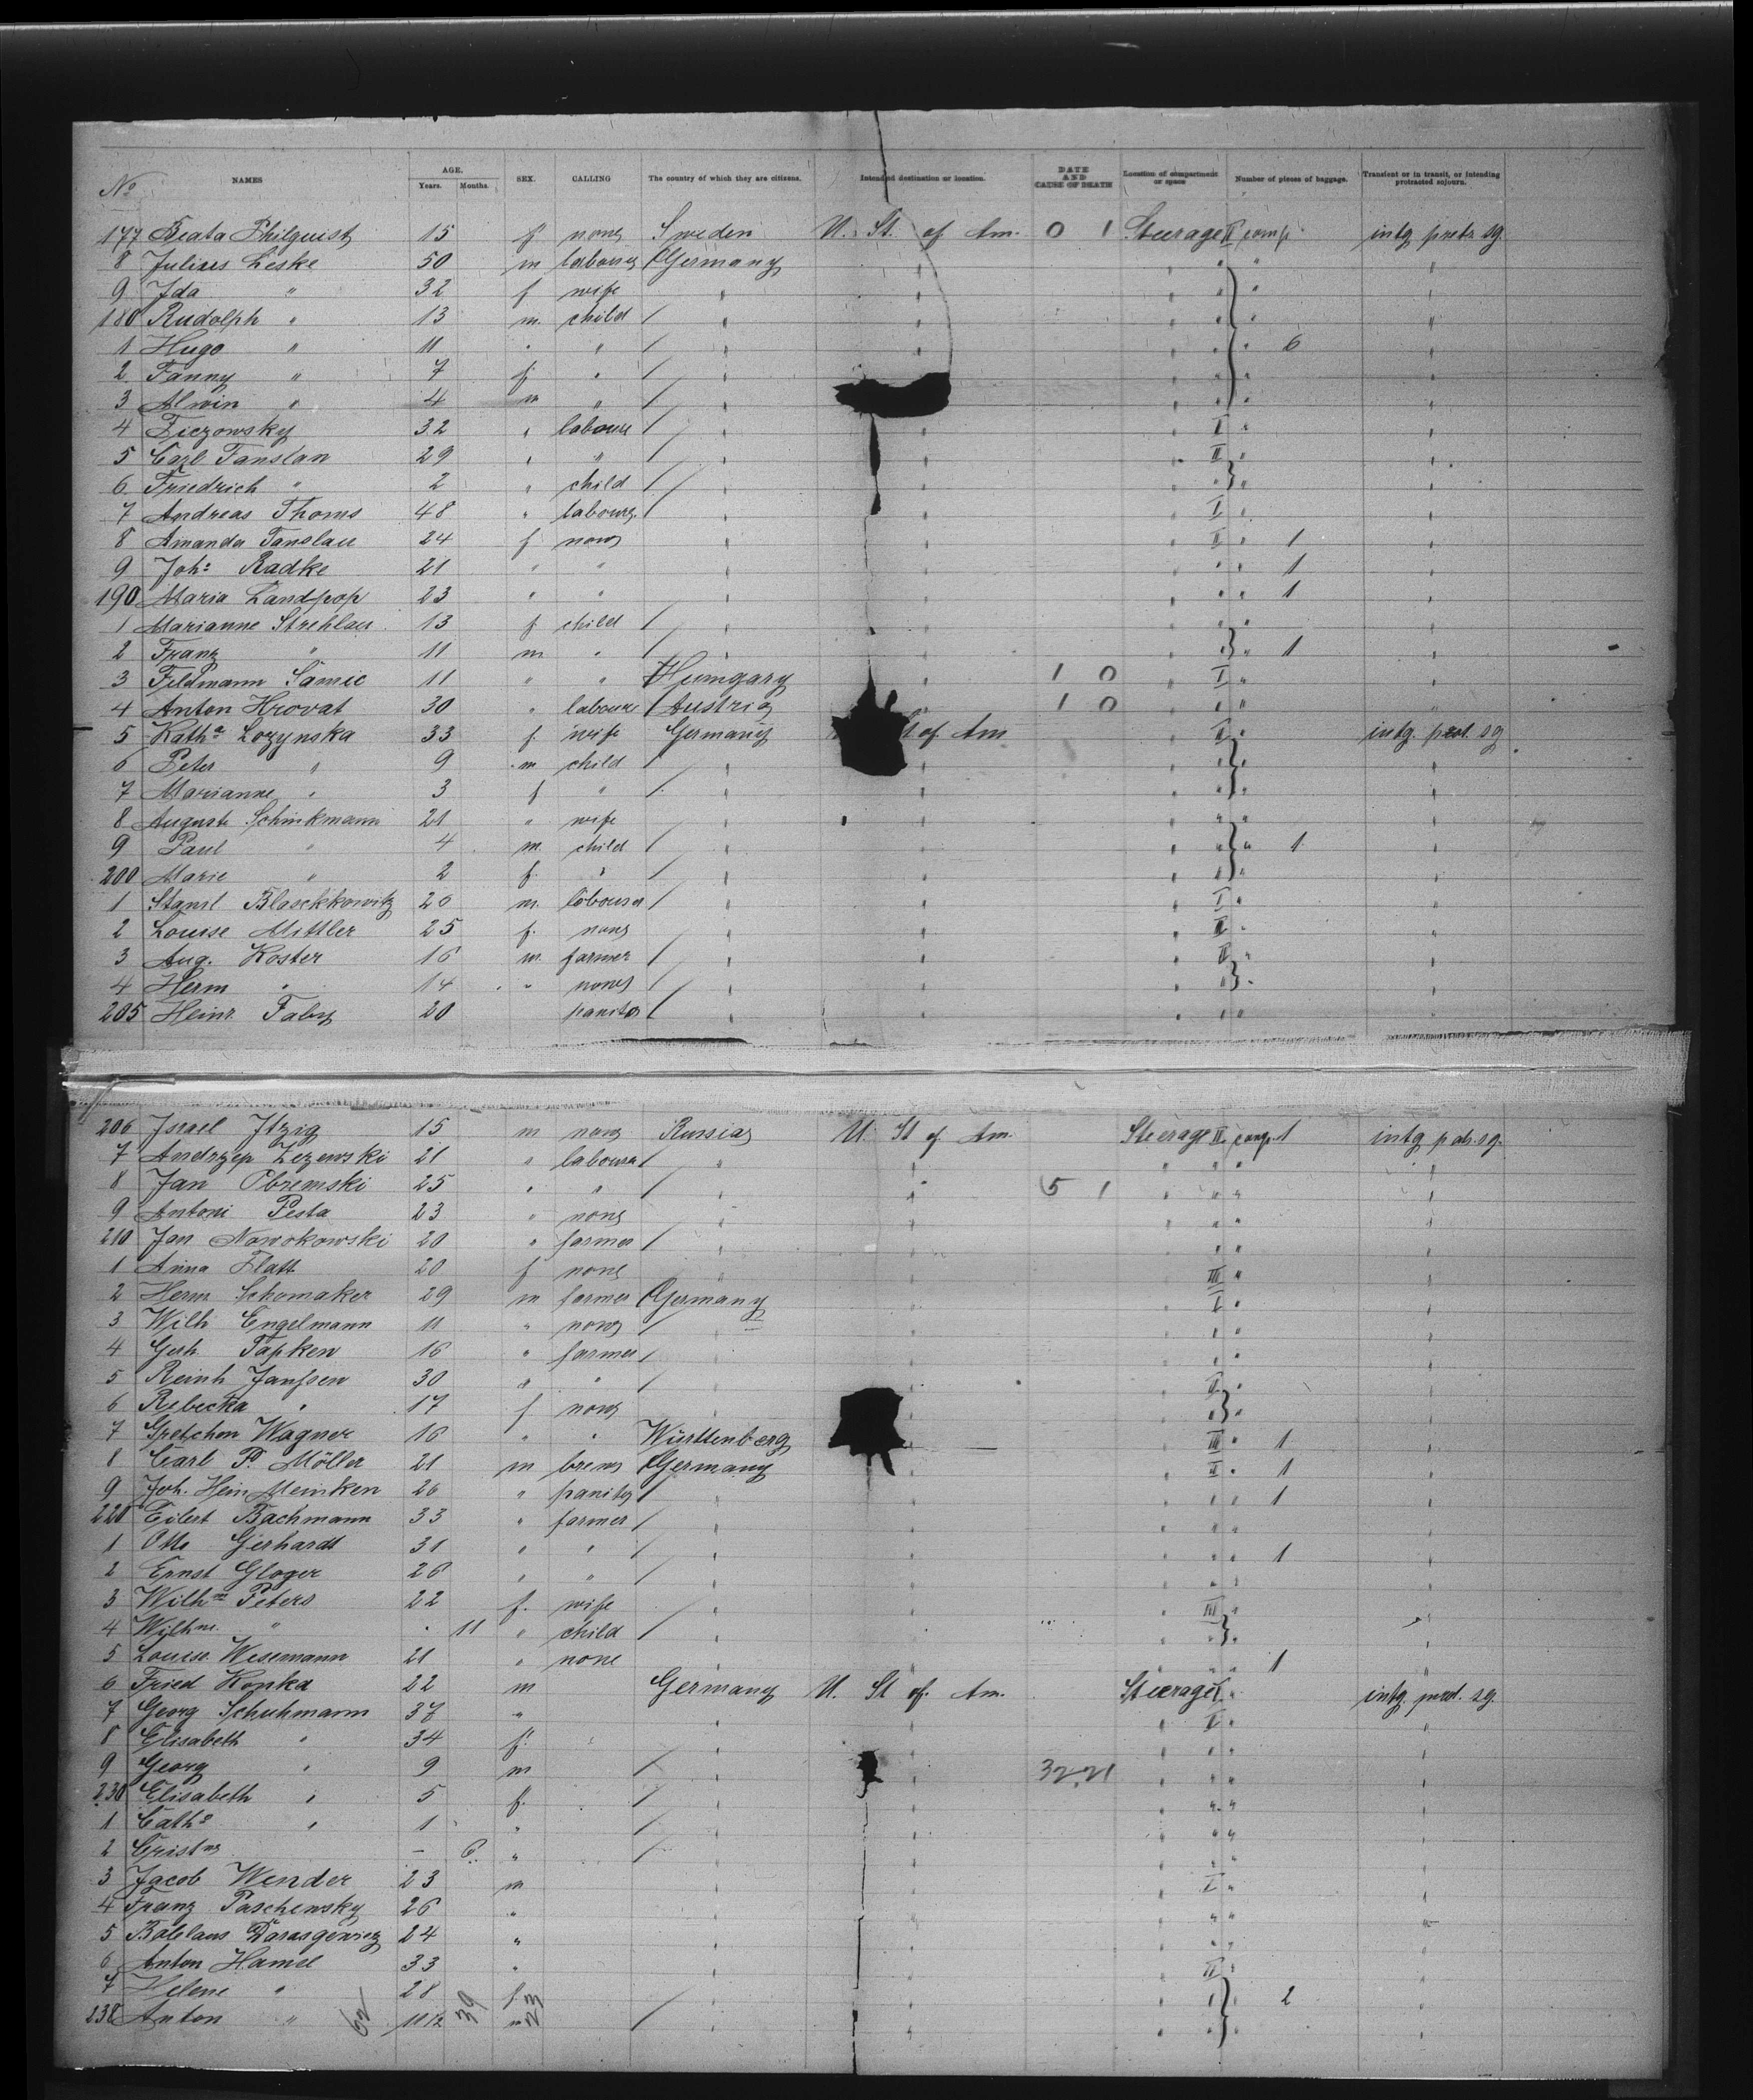 No NAMES AGE. Years. Months. SEX. CALLING The country of which they are citizens. Intended destination or location. DATE AND CAUSE OF DEATH Location of compartment or space Number of pieces of baggage. Transient or in transit, or intending protracted sojourn.
177 Beata Philquist 15 f none Sweden U. St. of Am. 0 1 Steerage II comp intg protr sg.
8 Julius Leske 50 m labourer Germany " " " " "
9 Ida " 32 f wife " " " " " "
180 Rudolph " 13 m. child / " " " " " "
1 Hugo " 11 " " / " " " " " 6 "
2 Fanny " 7 f " / " " " " " "
3 Alwin " 4 m " / " " " " " "
4 Ziezowsky 32 " laboure / " " " I " "
5 Carl Fanslau 29 " " / " " " II " "
6 Friedrich " 2 " child / " " " " " "
7 Andreas Thoms 48 " labourer / " " " I " "
8 Amanda Fanslau 24 f none " " " II " 1 "
9 Joh: Radke 21 " " " " " " " 1 "
190 Maria Landpop 23 " " " " " " " 1 "
1 Marianne Strehlau 13 f child / " " " " " "
2 Franz " 11 m. " / " " " " " 1 "
3 Feldmann Samie 11 " " Humgary " 1 0 " I " "
4 Anton Hrovat 30 " laboure / Austria " 1 0 " " " "
5 Katha Lozynska 33 f. wife Germany St of Am " II " intg. prot. sg
6 Peter " 9 m child / " " " " " "
7 Marianne " 3 f " / " " " " " "
8 Auguste Schinkmann 21 " wife " " " " " "
9 Paul " 4 m. child / " " " " " 1 "
200 Marie " 2 f. " / " " " " " "
1 Stanil Blaschkowitz 26 m. labourer / " " " I " "
2 Louise Mittler 25 f. none " " " II " "
3 Aug. Koster 16 m. farmer / " " " II " "
4 Herm " 14 " none / " " " " " "
205 Heinr. Faby 20 / " " " " " "
206 Israel Itzig 15 m none Russia U. St of Am. Steerage II comp. 1 intg
7 Andrzep Zezewski 21 " laboure / " " " " " "
8 Jan Obremski 25 " " / " " 5 1 " " " "
9 Antoni Pesta 23 " none " " " " " "
210 Jan Nowokowski 20 " farmer / " " " " " "
1 Anna Flatt 20 f none " " " III " "
2 Herm Schomaker 29 m farmer Germany " " I " "
3 Wilh Engelmann 11 " none / " " " " " "
4 Gerh. Tapken 16 " farmer / " " " " " "
5 Reinh Janssen 30 " " / " " " II " "
6 Rebecka " 17 f none " " " " " "
7 Gretchen Wagner 16 " " Württenberg " " III " 1 "
8 Carl P. Möller 21 m Germany " " II " 1 "
9 Joh. Hein Meinken 26 " / " " " " " 1 "
220 Eilert Bachmann 33 " farmer / " " " " " "
1 Otto Gerhardt 31 " " / " " " " " 1 "
2 Ernst Gloger 26 " " / " " " " " "
3 Wilhne Peters 22 f. wife " " " III " "
4 Wilhne. " " 11 " child / " " " " " "
5 Louise Wesemann 21 " none " " " " " 1 "
6 Fried Konka 22 m Germany U. St of. Am. Steerage I " intg. prot. sg.
7 Georg Schuhmann 37 " " " " II " "
8 Elisabeth " 34 f. " " " " " "
9 Georg " 9 m / " " 32,21 " " " "
230 Elisabeth " 5 f. / " " " " " "
1 Cathe " 1 " / " " " " " "
2 Cristne - 6 " / " " " " " "
3 Jacob Wender 23 m " " " I " "
4 Franz Paschewsky 26 " " " " " " "
5 Boleslaus 24 " " " " " " "
6 Anton Hamel 33 " " " " II " "
7 Helene " 28 f " " " " " 2 "
238 Anton " 11/12 m / " " " " " "
62 39 23